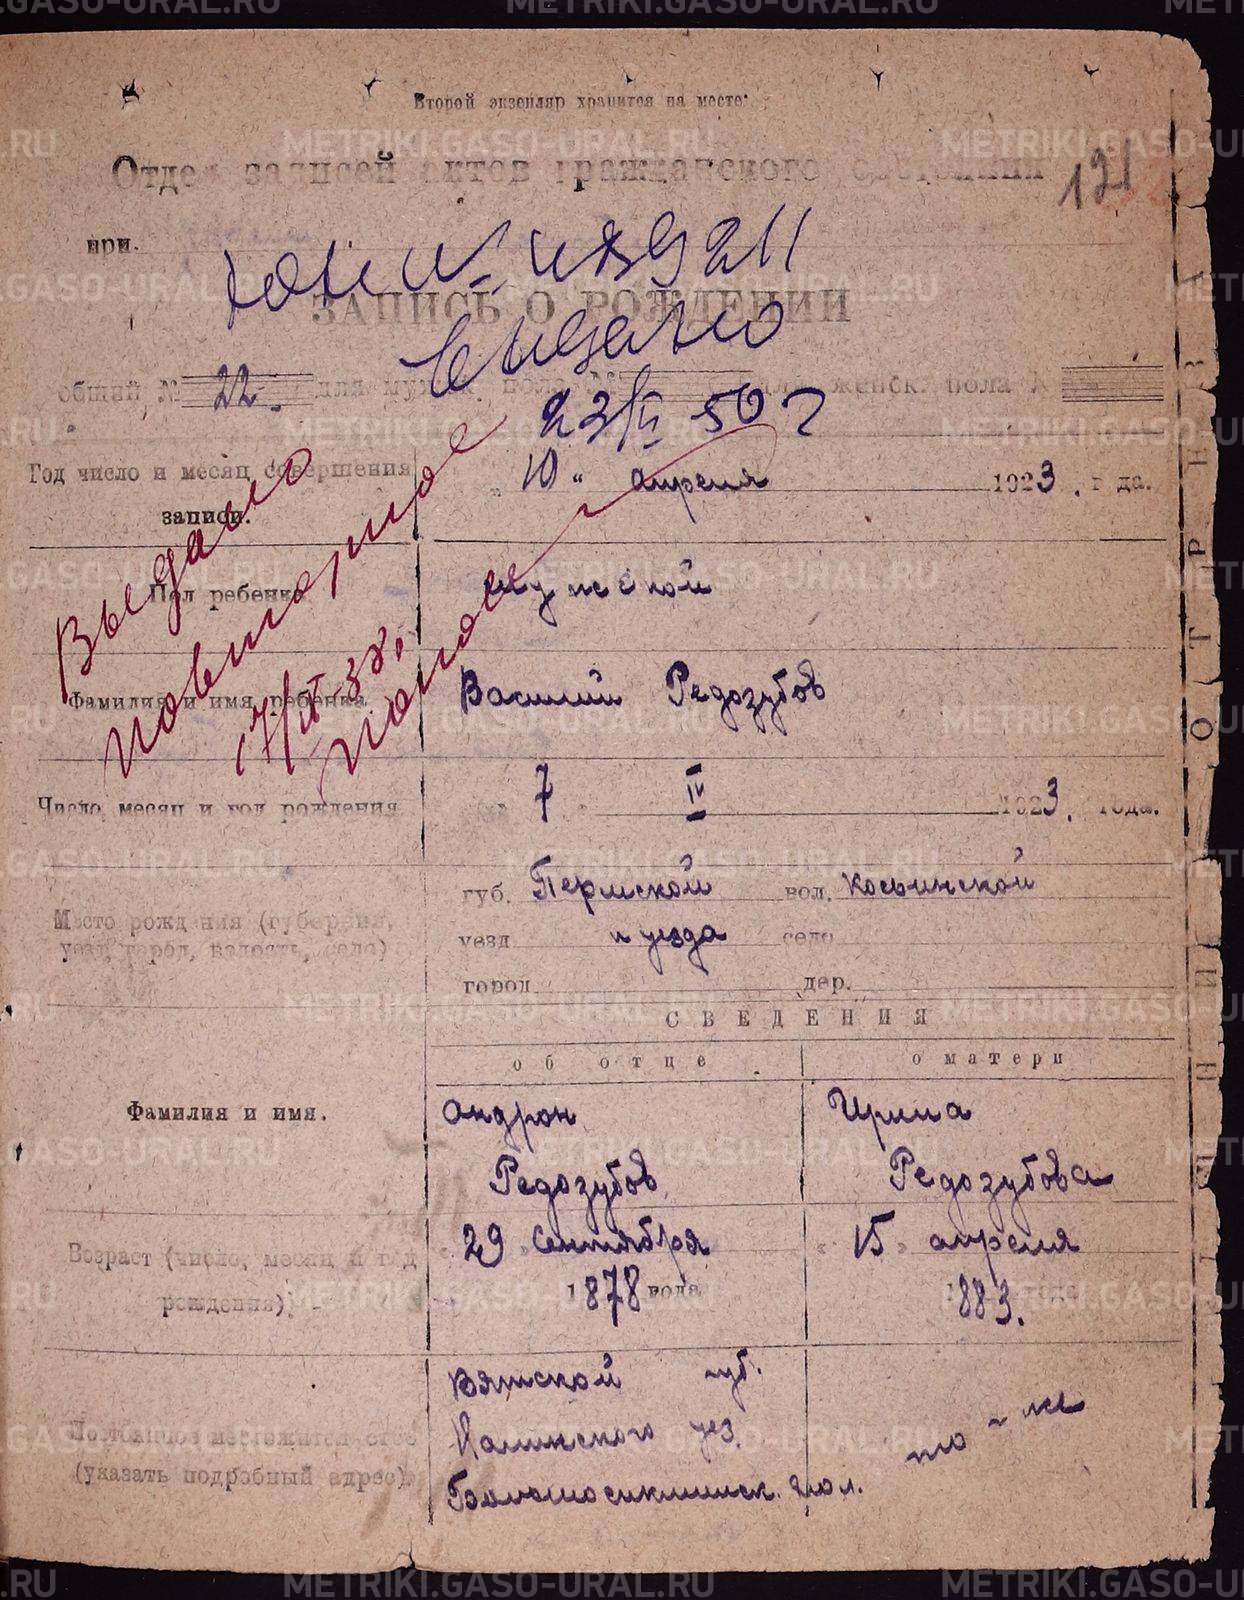 Второй экземпляр хранится на месте.
Отдел записей актов гражданского состояния
121
при.
ЗАПИСЬ О РОЖДЕНИИ
выдано
общий № 22. для мужск. пола № для женск. пола №
23/VI 50 г
Год число и месяц совершения записи.
„ 10 “ апреля 1923. года.
Выдано
повторное
17/IV 38,
Пол ребенка
мужской
Фамилия и имя ребенка
Василий Редозубов
Число, месяц и год рождения
„ 7 „ IV 1923. года.
Место рождения (губерния, уезд, город, волость, село)
губ. Пермской вол. Косьинской
уезд и уезда село
город дер.
СВЕДЕНИЯ
об отце
о матери
Фамилия и имя.
Андрон Редозубов
Ирина Редозубова
Возраст (число, месяц и год рождения)
29 Сентября 1878 года
„ 15 „ апреля 1883. года
Постоянное местожительство (указать подробный адрес)
Вятской губ.
уез.
вол.
то-же
METRIKI.GASO-URAL.RU